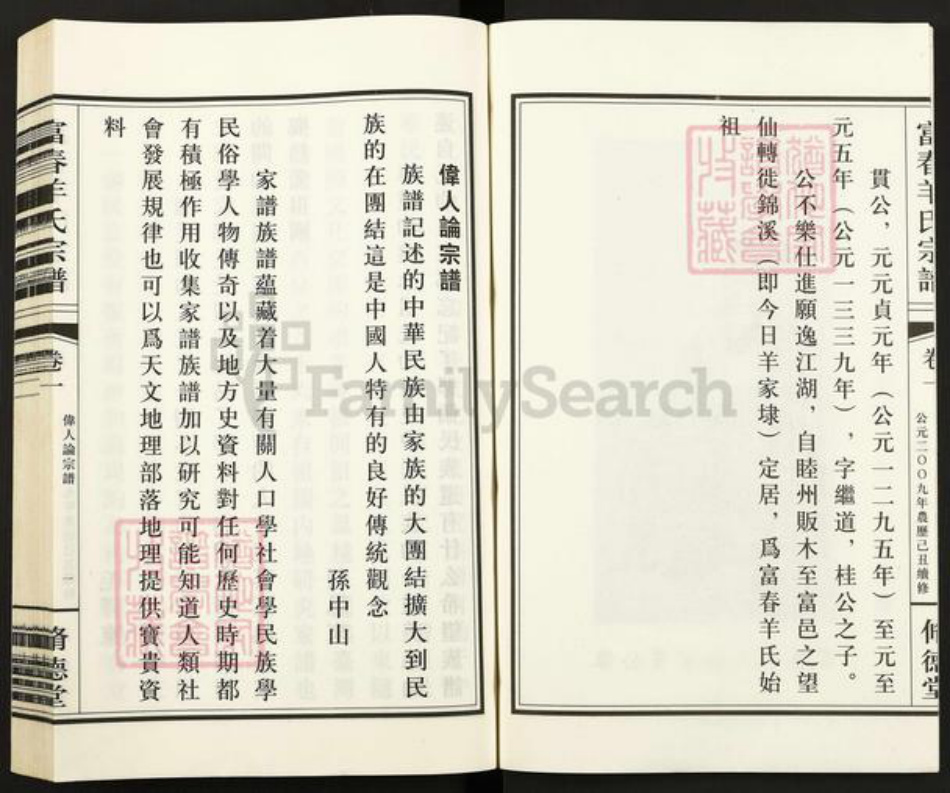 富春羊氏宗譜
卷一
公元二〇〇九年農歷己丑續修
脩德堂
貫公，元元貞元年（公元一二九五年）至元至
元五年（公元一三三九年），字繼道，桂公之子。
公不樂仕進願逸江湖，自睦州販木至富邑之望
仙轉徙錦溪（即今日羊家埭）定居，爲富春羊氏始
祖
偉人論宗譜
族譜記述的中華民族由家族的大團結擴大到民
族的在團結這是中國人特有的良好傳統觀念
孫中山
家譜族譜蘊藏着大量有關人口學社會學民族學
民俗學人物傳奇以及地方史資料對任何歷史時期都
有積極作用收集家譜族譜加以研究可能知道人類社
會發展規律也可以爲天文地理部落地理提供寶貴資
料
富春羊氏宗譜
卷一
偉人論宗譜
脩德堂
FamilySearch